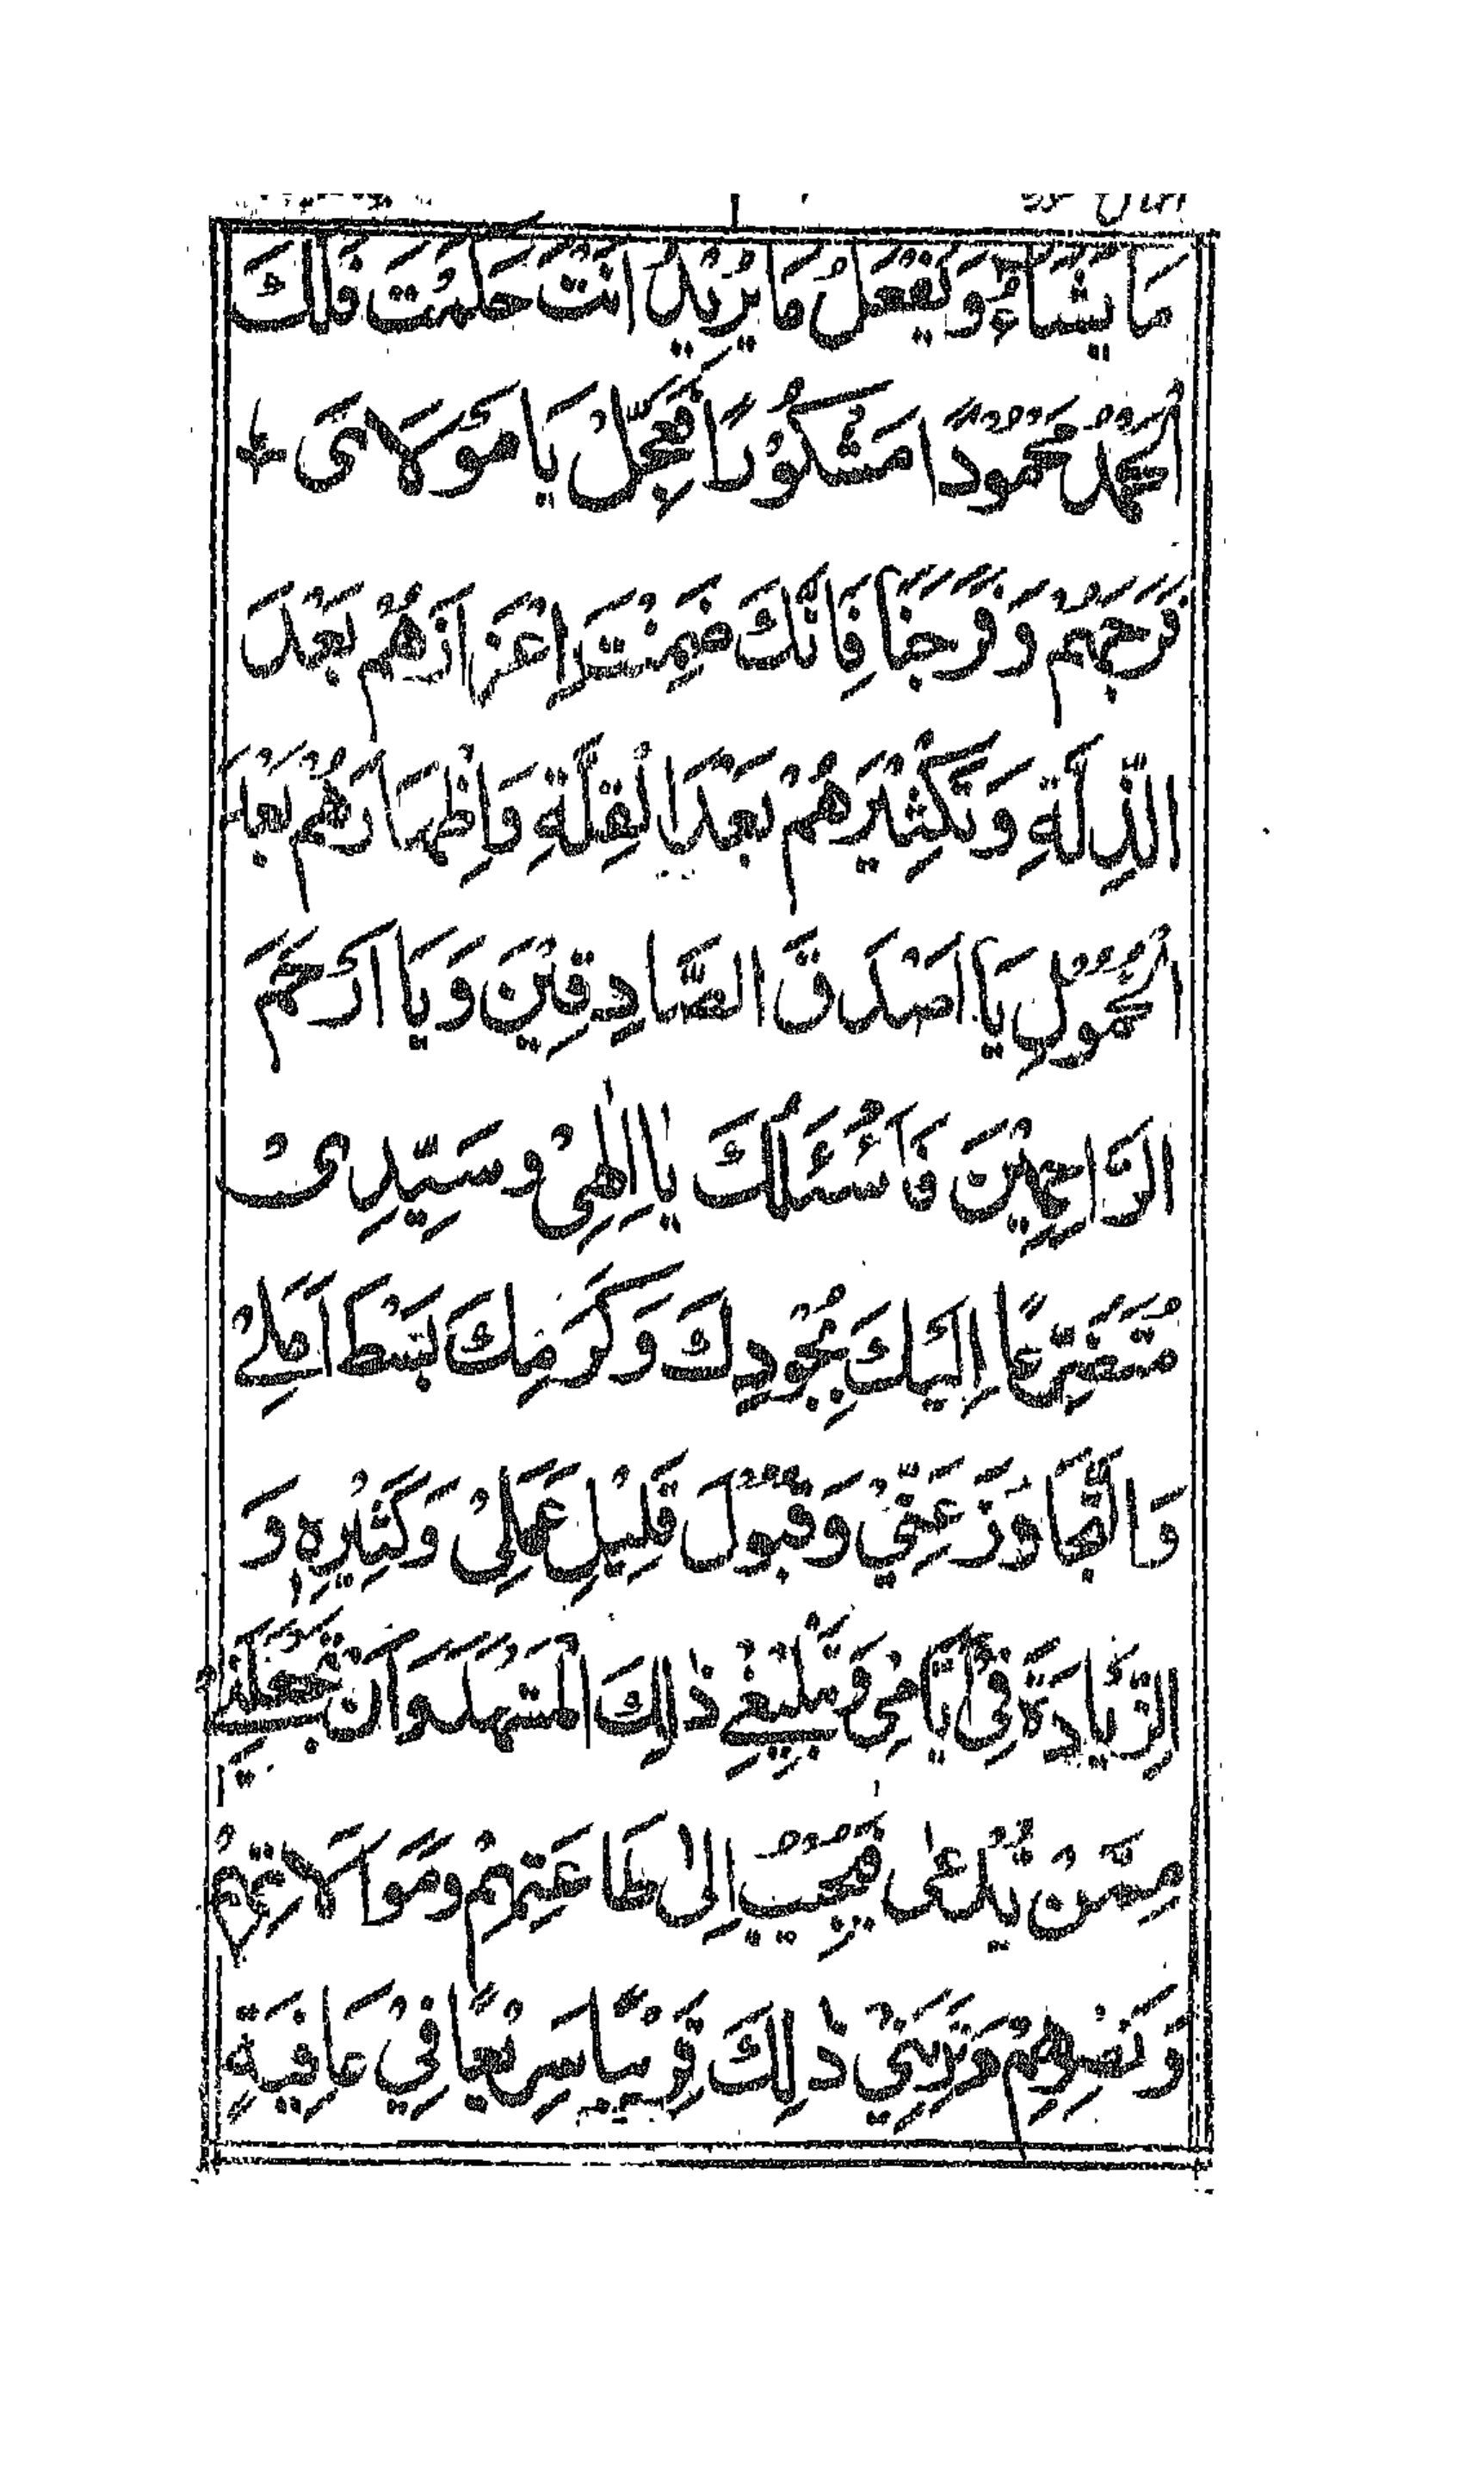 مَا يَشَاءُ وَيَفْعَلُ مَا يُرِيْدُ اَنْتَ حَكَمْتَ فَلَكَ
الْحَمْدُ مَحْمُوْدًا مَشْكُوْرًا فَعَجِّلْ يَا مَوْلَایَ
فَرَجَهُمْ وَفَرَجَنَا فَاِنَّكَ ضَمِنْتَ اِعْزَازَهُمْ بَعْدَ
الذِّلَّةِ وَتَكْثِيْرَهُمْ بَعْدَ الْقِلَّةِ وَاِظْهَارَهُمْ بَعْدَ
الْخُمُوْلِ يَا اَصْدَقَ الصَّادِقِيْنَ وَيَا اَرْحَمَ
الرَّاحِمِيْنَ فَاَسْئَلُكَ يَا اِلٰهِیْ وَسَيِّدِیْ
مُتَضَرِّعًا اِلَيْكَ بِجُوْدِكَ وَكَرَمِكَ بَسْطَ اَمَلِےْ
وَالتَّجَاوُزَ عَنِّیْ وَقَبُوْلَ قَلِيْلِ عَمَلِیْ وَكَثِيْرِهٖ وَ
الزِّيَادَةَ فِیْ اَيَّامِیْ وَتَبْلِيْغِےْ ذٰلِكَ الْمَشْهَدَ وَاَنْ تَجْعَلَنِےْ
مِمَّنْ يُدْعٰی فَيُجِيْبُ اِلیٰ طَاعَتِهِمْ وَمُوَالَاتِهِمْ
وَنَصْرِهِمْ وَتُرِيَنِیْ ذٰلِكَ قَرِيْبًا سَرِيْعًا فِیْ عَافِيَةٍ